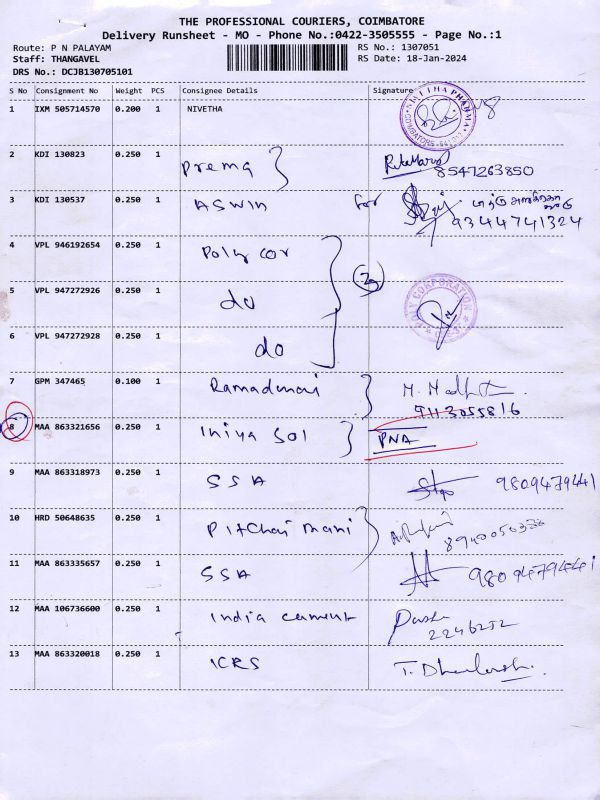 THE PROFESSIONAL COURIERS, COIMBATORE
Delivery Runsheet - MO - Phone No.:0422-3505555 - Page No.:1
Route: P N PALAYAM
RS No.: 1307051
Staff: THANGAVEL
RS Date: 18-Jan-2024
DRS No.: DCJB130705101
S No Consignment No Weight PCS Consignee Details Signature
1 IXM 505714570 0.200 1 NIVETHA
2 KDI 130823 0.250 1 Prema 8547263850
3 KDI 130537 0.250 1 ASWIN for
9344741324
4 VPL 946192654 0.250 1 Poly cor
3
5 VPL 947272926 0.250 1 do
6 VPL 947272928 0.250 1 do
7 GPM 347465 0.100 1 Ramadurai
9113055816
8 MAA 863321656 0.250 1 Iniya Sol PNA
9 MAA 863318973 0.250 1 SSA 9809479441
10 HRD 50648635 0.250 1 Pitchai mani
11 MAA 863335657 0.250 1 SSA 9809479441
12 MAA 106736600 0.250 1 India cement
2246252
13 MAA 863320018 0.250 1 ICRS